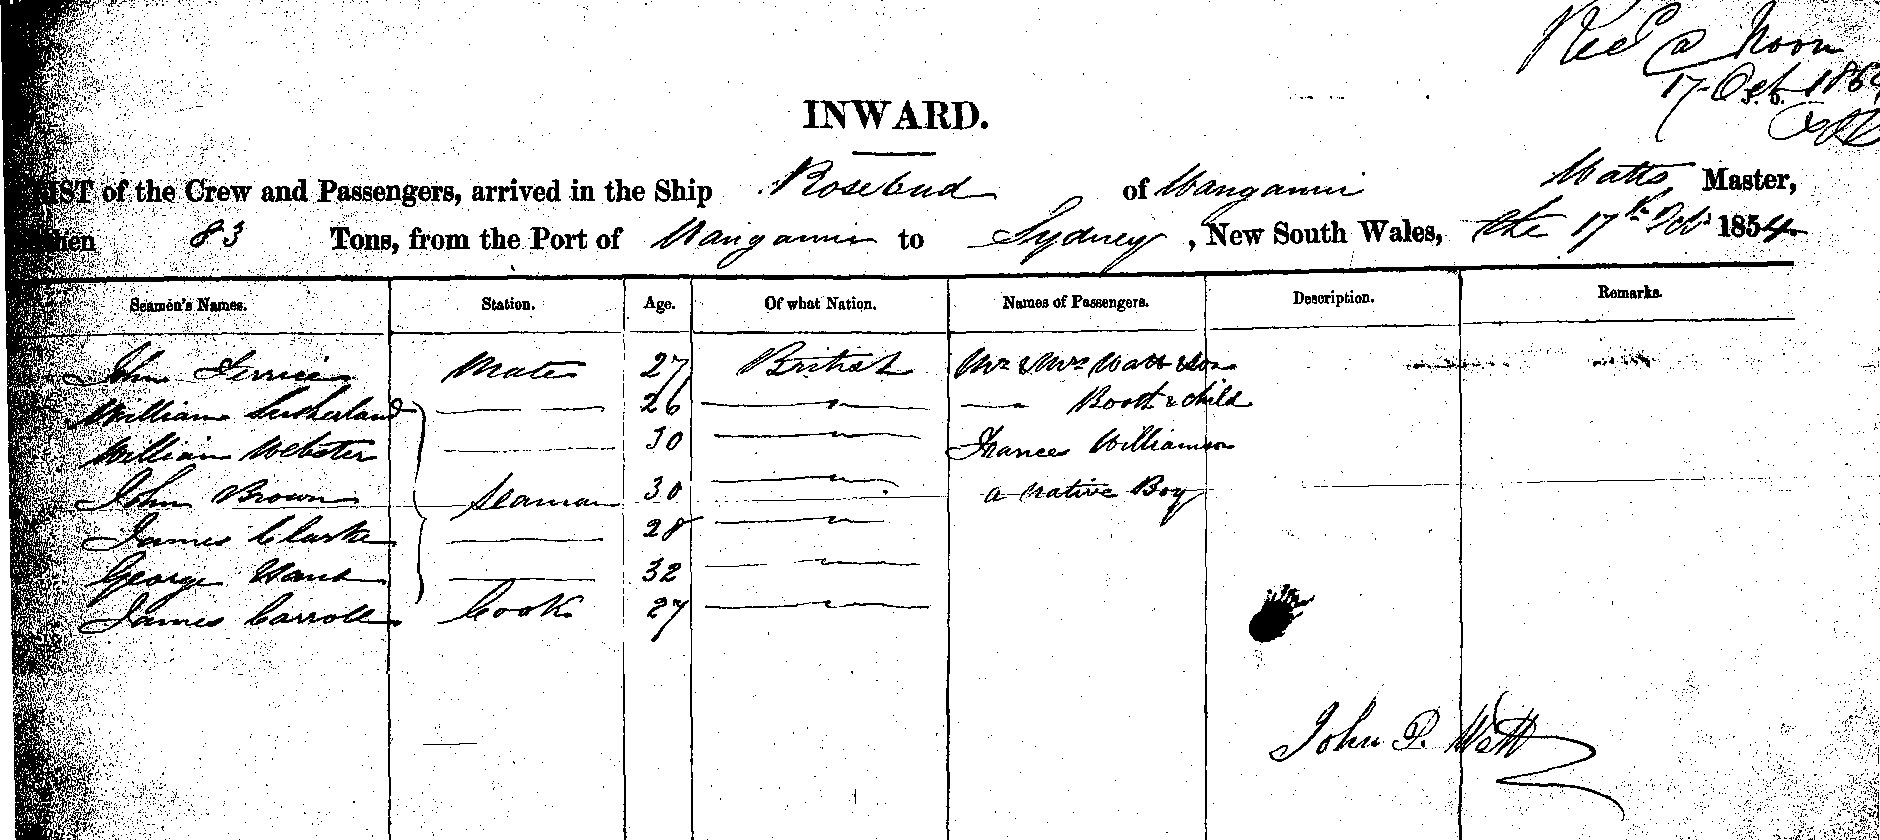 Recd @ Noon
17 Oct. 1864
INWARD.
LIST of the Crew and Passengers, arrived in the Ship Rosebud of Wanganui Watts, Master,
83 Tons, from the Port of Wanganui to Sydney, New South Wales, the 17th Oct 1854
Seamen's Names. Station. Age. Of what Nation. Names of Passengers. Description. Remarks.
John Mate 27 British Mr & Mrs Watt & Son
William Sutherland 26 " Booth & child
William Webster 30 " Frances Williamson
John Brown Seaman 30 " a native Boy
James Clarke 28 "
George 32 "
James Carroll Cook 27 "
John P. Watt